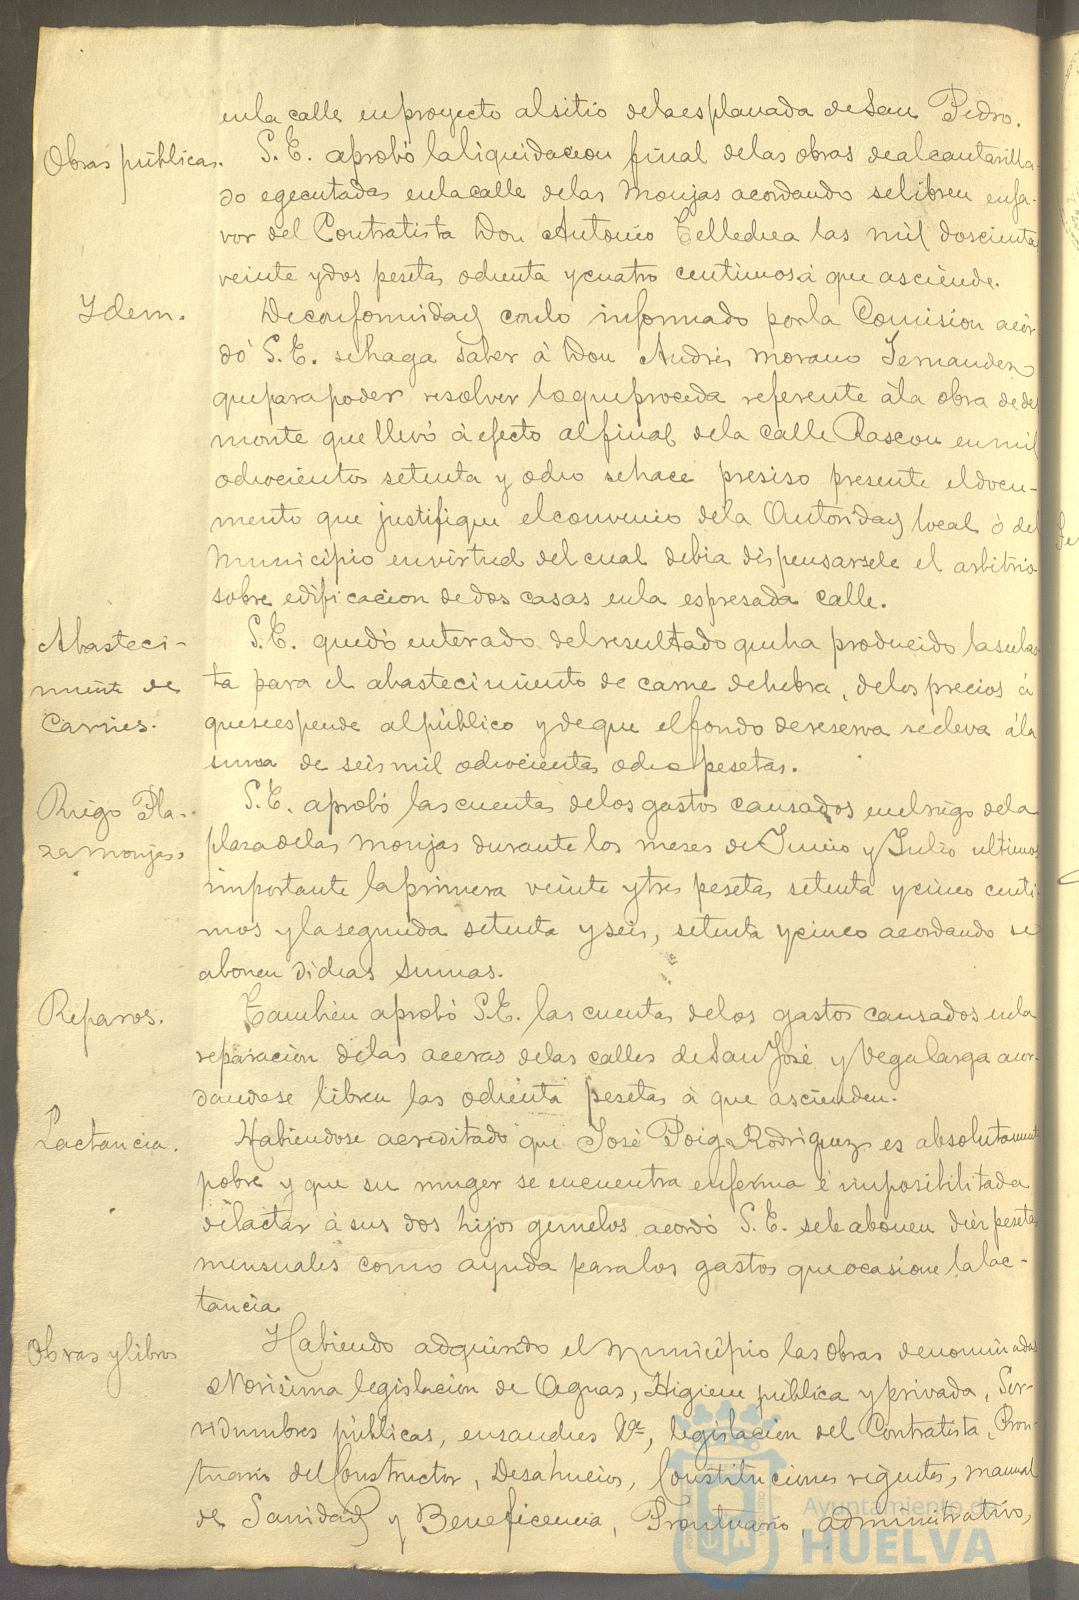 en la calle en proyecto al sitio de la esplanada de San Pedro.
Obras públicas. S.E. aprobó la liquidacion final de las obras de alcantarilla-
do egecutadas en la calle de las Monjas acordando se libren en fa-
vor del Contratista Don Antonio las mil doscientas
veinte y dos pesetas ochenta y cuatro centimos á que asciende.
Ydem. De conformidad con lo informado por la Comision acor-
dó S.E. se haga saber á Don Andrés Morano Fernandez
que para poder resolver lo que proceda referente á la obra de des
monte que llevó á efecto al final de la calle Rascon en mil
ochocientos setenta y ocho se hace presiso presente el docu-
mento que justifique el convenio de la Autoridad local ó del
Municipio en virtud del cual debia dispensarsele el arbitrio
sobre edificacion de dos casas en la espresada calle.
Abasteci- S.E. quedó enterado del resultado que ha producido la subas
miento de ta para el abastecimiento de carne de hebra, de los precios á
Carnes. que se espende al público y de que el fondo de reserva se eleva á la
suma de seis mil ochocientas ocho pesetas.
Riego Pla- S.E. aprobó las cuentas de los gastos causados en el riego de la
za Monjas. plaza de las Monjas durante los meses de Junio y Julio ultimos
importante la primera veinte y tres pesetas setenta y cinco centi
mos y la segunda setenta y seis, setenta y cinco acordando se
abonen dichas sumas.
Reparos. Tambien aprobó S.E. las cuentas de los gastos causados en la
reparacion de las aceras de las calles de San José y Vega larga acor-
dandose libren las ochenta pesetas á que ascienden.
Lactancia. Habiendose acreditado que José Roig Rodriguez es absolutamente
pobre y que su muger se encuentra enferma é imposibilitada
de lactar á sus dos hijos gemelos acordó S.E. se le abonen diez pesetas
mensuales como ayuda para los gastos que ocasione la lac-
tancia.
Obras y libros Habiendo adquirido el Municipio las obras denominadas
Novisima legislacion de Aguas, Higiene pública y privada, Ser-
vidumbres públicas, ensanches &ª, legislacion del Contratista, Pron-
tuario del Constructor, Desahucios, Constituciones vigentes, manual
de Sanidad y Beneficencia, Prontuario administrativo,
Ayuntamiento de
HUELVA